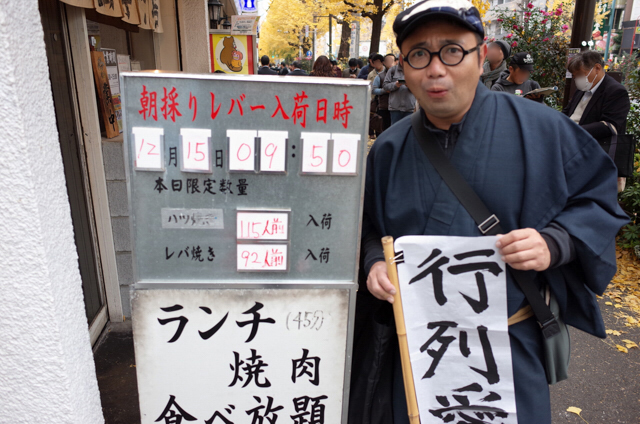 朝採りレバー入荷日時
12月15日09:50
本日限定数量
ハツ焼き 115人前 入荷
レバ焼き 92人前 入荷
ランチ(45分)
焼肉
食べ放題
行列愛